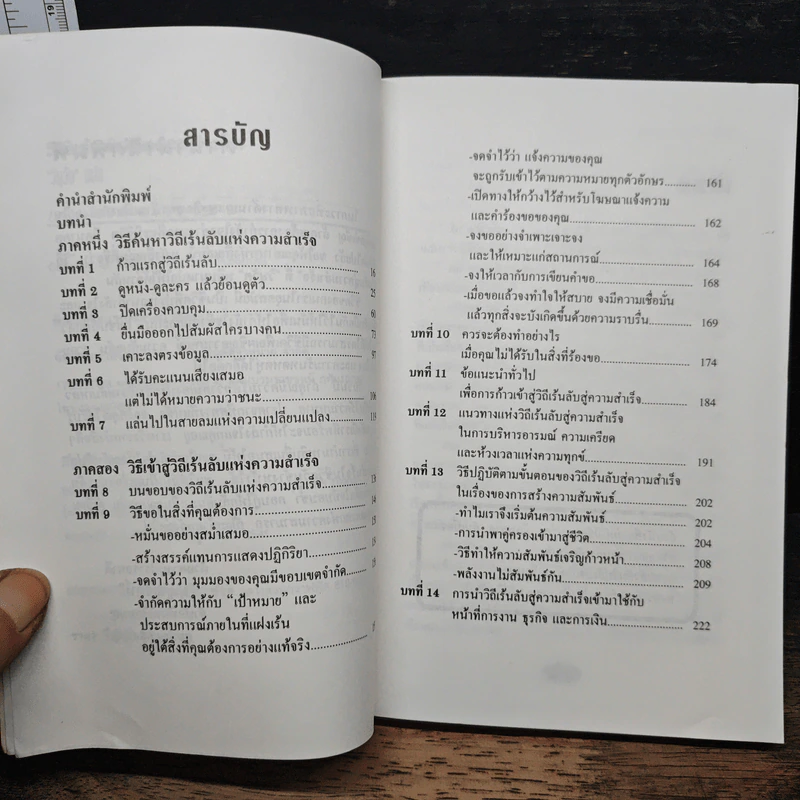 19
สารบัญ
คำนำสำนักพิมพ์
บทนำ
ภาคหนึ่ง วิธีค้นหาวิถีเร้นลับแห่งความสำเร็จ
บทที่ 1 ก้าวแรกสู่วิถีเร้นลับ 16
บทที่ 2 ดูหนัง-ดูละคร แล้วย้อนดูตัว 25
บทที่ 3 ปิดเครื่องควบคุม 60
บทที่ 4 ยื่นมือออกไปสัมผัสใครบางคน 73
บทที่ 5 เคาะลงตรงข้อมูล 97
บทที่ 6 ได้รับคะแนนเสียงเสมอ
แต่ไม่ได้หมายความว่าชนะ 106
บทที่ 7 แล่นไปในสายลมแห่งความเปลี่ยนแปลง
ภาคสอง วิธีเข้าสู่วิถีเร้นลับแห่งความสำเร็จ
บทที่ 8 บนขอบของวิถีเร้นลับแห่งความสำเร็จ
บทที่ 9 วิธีขอในสิ่งที่คุณต้องการ
-หมั่นขออย่างสม่ำเสมอ
-สร้างสรรค์แทนการแสดงปฏิกิริยา
-จดจำไว้ว่า มุมมองของคุณมีขอบเขตจำกัด
-จำกัดความให้กับ "เป้าหมาย" และ
ประสบการณ์ภายในที่แฝงเร้น
อยู่ใต้สิ่งที่คุณต้องการอย่างแท้จริง
-จดจำไว้ว่า แจ้งความของคุณ
จะถูกรับเข้าไว้ตามความหมายทุกตัวอักษร 161
-เปิดทางให้กว้างไว้สำหรับโฆษณาแจ้งความ
และคำร้องขอของคุณ 162
-จงขออย่างจำเพาะเจาะจง
และให้เหมาะแก่สถานการณ์ 164
-จงให้เวลากับการเขียนคำขอ 168
-เมื่อขอแล้วจงทำใจให้สบาย จงมีความเชื่อมั่น
แล้วทุกสิ่งจะบังเกิดขึ้นด้วยความราบรื่น 169
บทที่ 10 ควรจะต้องทำอย่างไร
เมื่อคุณไม่ได้รับในสิ่งที่ร้องขอ 174
บทที่ 11 ข้อแนะนำทั่วไป
เพื่อการก้าวเข้าสู่วิถีเร้นลับสู่ความสำเร็จ 184
บทที่ 12 แนวทางแห่งวิถีเร้นลับสู่ความสำเร็จ
ในการบริหารอารมณ์ ความเครียด
และห้วงเวลาแห่งความทุกข์ 191
บทที่ 13 วิธีปฏิบัติตามขั้นตอนของวิถีเร้นลับสู่ความสำเร็จ
ในเรื่องของการสร้างความสัมพันธ์ 202
-ทำไมเราจึงเริ่มต้นความสัมพันธ์ 202
-การนำพาคู่ครองเข้ามาสู่ชีวิต 204
-วิธีทำให้ความสัมพันธ์เจริญก้าวหน้า 208
-พลังงานไม่สัมพันธ์กัน 209
บทที่ 14 การนำวิถีเร้นลับสู่ความสำเร็จเข้ามาใช้กับ
หน้าที่การงาน ธุรกิจ และการเงิน 222